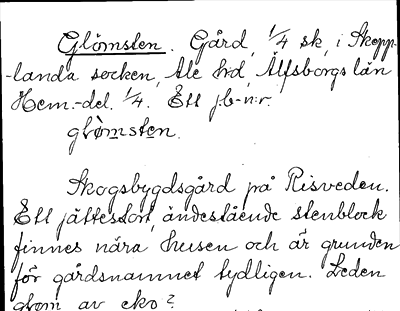 Glömsten. Gård, 1/4 sk, i Skepp-
-landa socken, Ale hd, Älfsborgs län
Hem.-del. 1/4. Ett jb-n:r.
glòmsten.
Skogsbygdsgård på Risveden.
Ett jättestort, ändestående stenblock
finnes nära husen och är grunden
för gårdsnamnet tydligen. Leden
glom av eko?